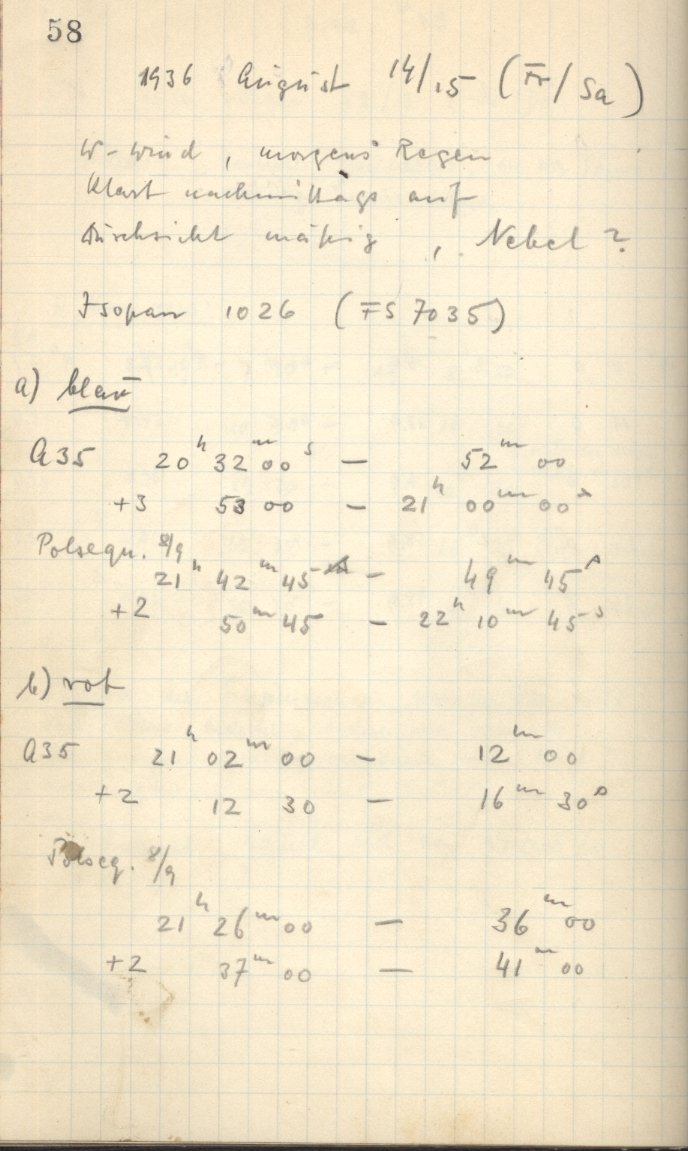 58
1936 August 14/15 (Fr/Sa)
W-Wind, morgens Regen
Klart nachmittags auf
Durchsicht mäßig, Nebel?
Isopan 1026 (FS 7035)
a) blau
A35 20h 32m 00s — 52m 00
+3 53 00 — 21h 00m 00s
Polsequ. 8/9
21h 42m 45 — 49m 45s
+2 50m 45 — 22h 10m 45s
b) rot
A35 21h 02m 00 — 12m 00
+2 12 30 — 16m 30s
Polseq. 8/9
21h 26m 00 — 36m 00
+2 37m 00 — 41m 00